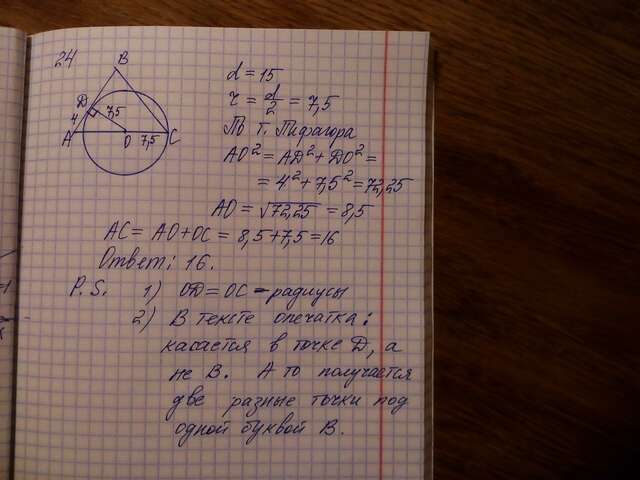 24
B
D
4
7,5
A
O
7,5
C
d = 15
r = d/2 = 7,5
По т. Пифагора
AO² = AD² + DO² =
= 4² + 7,5² = 72,25
AO = √72,25 = 8,5
AC = AO + OC = 8,5 + 7,5 = 16
Ответ: 16.
P.S. 1) OD = OC - радиусы
2) В тексте опечатка:
касается в точке D, а
не B. А то получается
две разные точки под
одной буквой B.